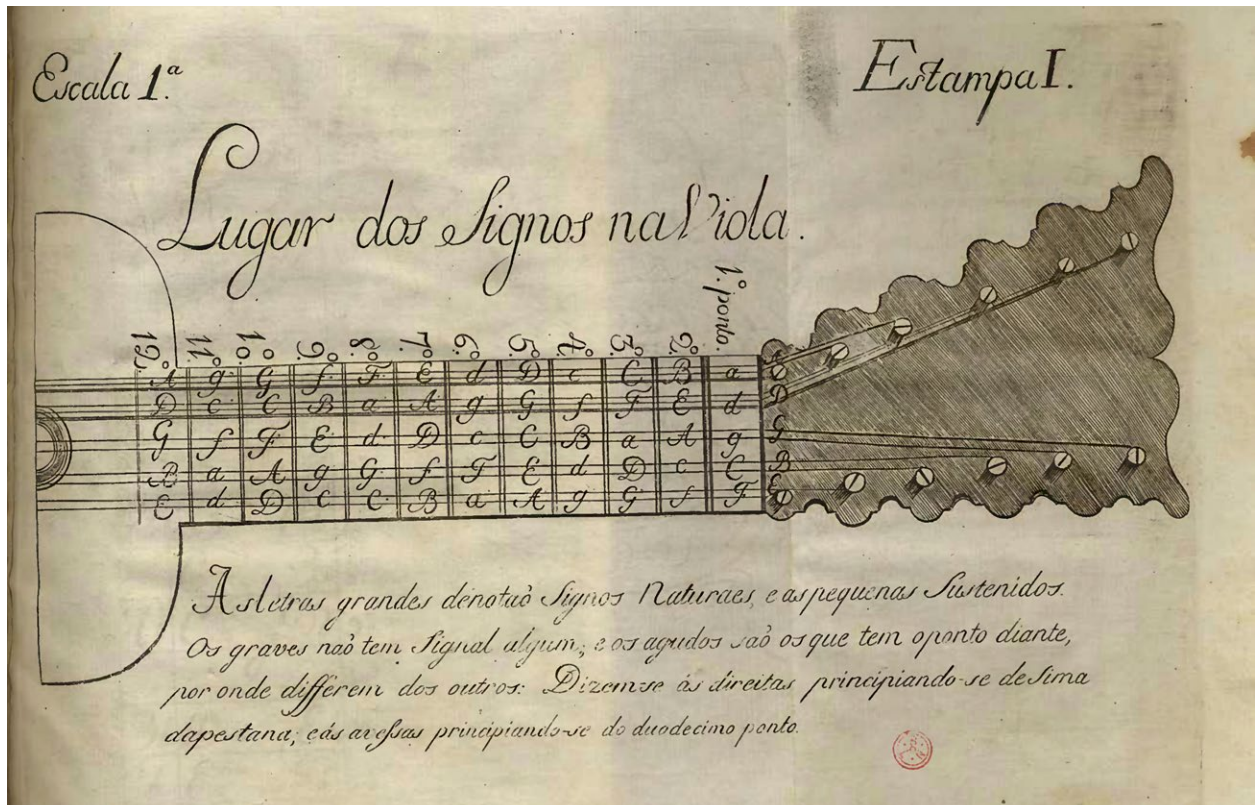 Escala 1.ª
Estampa I.
Lugar dos Signos na Viola.
12.º 11.º 10.º 9.º 8.º 7.º 6.º 5.º 4.º 3.º 2.º 1.º ponto.
A g G f F E d D c C B a A
D c C B a A g G f F E d D
G f F E d D c C B a A g G
B a A g G f F E d D c C B
E d D c C B a A g G f F E
As letras grandes denotaõ Signos Naturaes, e as pequenas Sustenidos.
Os graves naõ tem Signal algum; e os agudos saõ os que tem o ponto diante,
por onde differem dos outros: Dizem-se ás direitas principiando-se de sima
da pestana; e ás avessas principiando-se do duodecimo ponto.